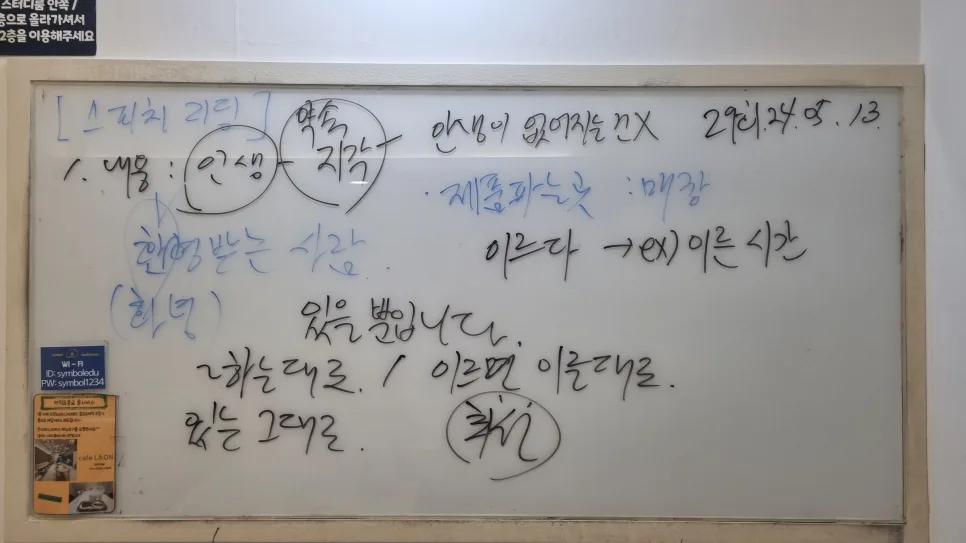 스터디룸 안쪽 /
층으로 올라가셔서
2층을 이용해주세요
[스피치 리딩]
1. 내용 : 인생 - 약속 지각 - 인생이 없어지는건X
24. 05. 13.
· 제품파는곳 : 매장
환영받는 사람.
이르다 → ex) 이른 시간
(환영)
있을 뿐입니다.
~하는대로. / 이르면 이른대로.
있는 그대로.
WI-FI
ID: symboledu
PW: symbol1234
cafe LEON